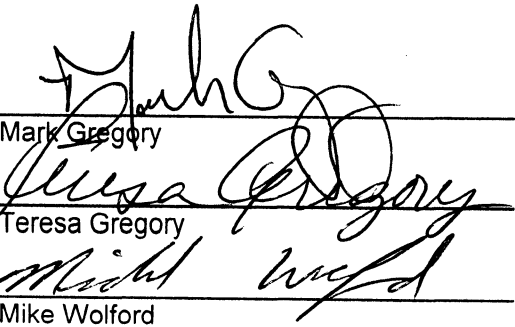 Mark G
Mark Gregory
Teresa Gregory
Teresa Gregory
Mike Wolford